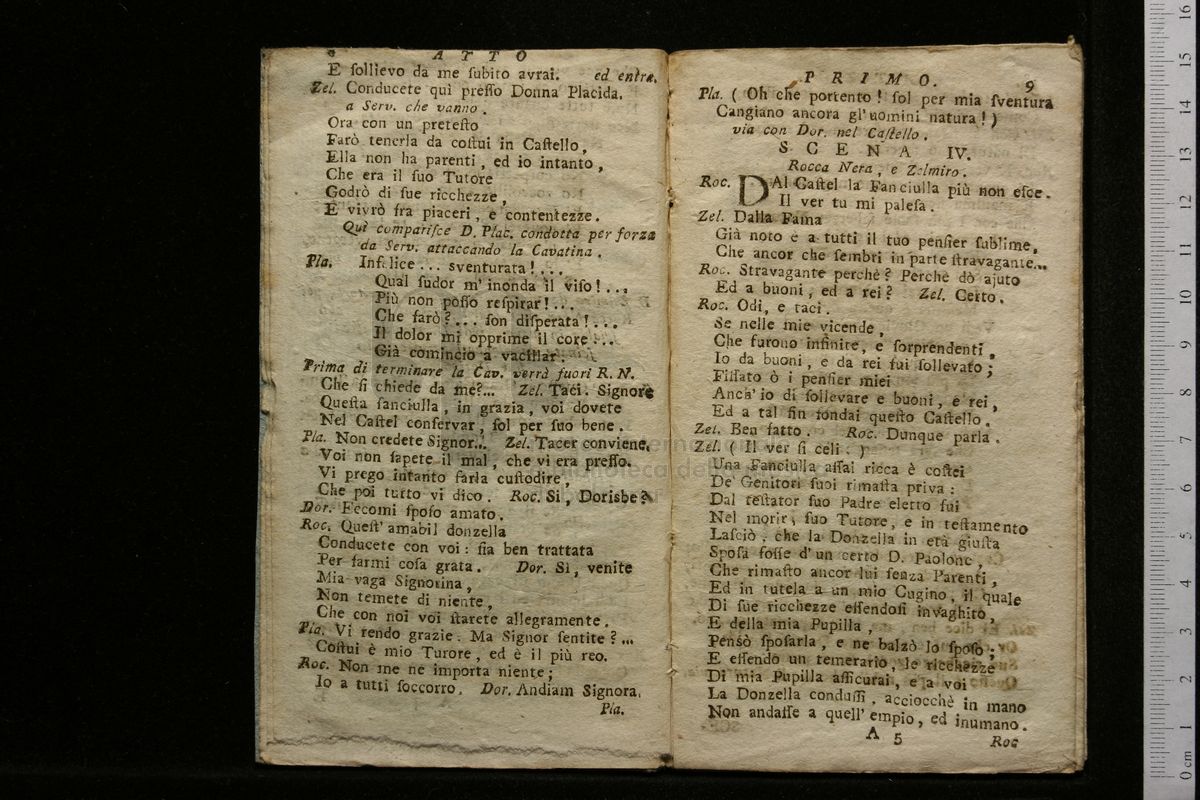 A T T O
E ſollievo da me ſubito avrai. ed entra.
Zel. Conducete quì preſſo Donna Placida.
a Serv. che vanno.
Ora con un preteſto
Farò tenerla da coſtui in Caſtello,
Ella non ha parenti, ed io intanto,
Che era il ſuo Tutore
Godrò di ſue ricchezze,
E vivrò fra piaceri, e contentezze.
Quì compariſce D. Plac. condotta per forza
da Serv. attaccando la Cavatina.
Pla. Infelice... sventurata!...
Qual ſudor m'inonda il viſo!...
Più non poſſo reſpirar!...
Che farò?... ſon diſperata!...
Il dolor mi opprime il core!...
Già comincio a vacillar.
Prima di terminare la Cav. verrà fuori R. N.
Che ſi chiede da me?... Zel. Taci. Signore
Queſta fanciulla, in grazia, voi dovete
Nel Caſtel conſervar, ſol per ſuo bene.
Pla. Non credete Signor... Zel. Tacer conviene.
Voi non ſapete il mal, che vi era preſſo.
Vi prego intanto farla cuſtodire,
Che poi tutto vi dico. Roc. Si, Dorisbe?
Dor. Eccomi ſpoſo amato.
Roc. Queſt'amabil donzella
Conducete con voi: ſia ben trattata
Per farmi coſa grata. Dor. Sì, venite
Mia vaga Signorina,
Non temete di niente,
Che con noi voi ſtarete allegramente.
Pla. Vi rendo grazie. Ma Signor ſentite?...
Coſtui è mio Tutore, ed è il più reo.
Roc. Non me ne importa niente;
Io a tutti ſoccorro. Dor. Andiam Signora.
Pla.
P R I M O. 9
Pla. ( Oh che portento! ſol per mia ſventura
Cangiano ancora gl'uomini natura!)
via con Dor. nel Caſtello.
S C E N A IV.
Rocca Nera, e Zelmiro.
Roc. DAl Caſtel la Fanciulla più non eſce.
Il ver tu mi paleſa.
Zel. Dalla Fama
Già noto è a tutti il tuo penſier ſublime,
Che ancor che ſembri in parte ſtravagante...
Roc. Stravagante perchè? Perchè dò ajuto
Ed a buoni, ed a rei? Zel. Certo.
Roc. Odi, e taci.
Se nelle mie vicende,
Che furono infinite, e ſorprendenti,
Io da buoni, e da rei fui ſollevato;
Fiſſato ò i penſier miei
Anch'io di ſollevare e buoni, e rei,
Ed a tal fin fondai queſto Caſtello.
Zel. Ben fatto. Roc. Dunque parla.
Zel. ( Il ver ſi celi. )
Una Fanciulla aſſai ricca è coſtei
De' Genitori ſuoi rimaſta priva:
Dal teſtator ſuo Padre eletto fui
Nel morir, ſuo Tutore, e in teſtamento
Laſciò, che la Donzella in età giuſta
Spoſa foſſe d'un certo D. Paolone,
Che rimaſto ancor lui ſenza Parenti,
Ed in tutela a un mio Cugino, il quale
Di ſue ricchezze eſſendoſi invaghito,
E della mia Pupilla,
Pensò ſpoſarla, e ne balzò lo ſpoſo;
E eſſendo un temerario, le ricchezze
Di mia Pupilla aſſicurai, e a voi
La Donzella conduſſi, acciocchè in mano
Non andaſſe a quell'empio, ed inumano.
A 5 Roc